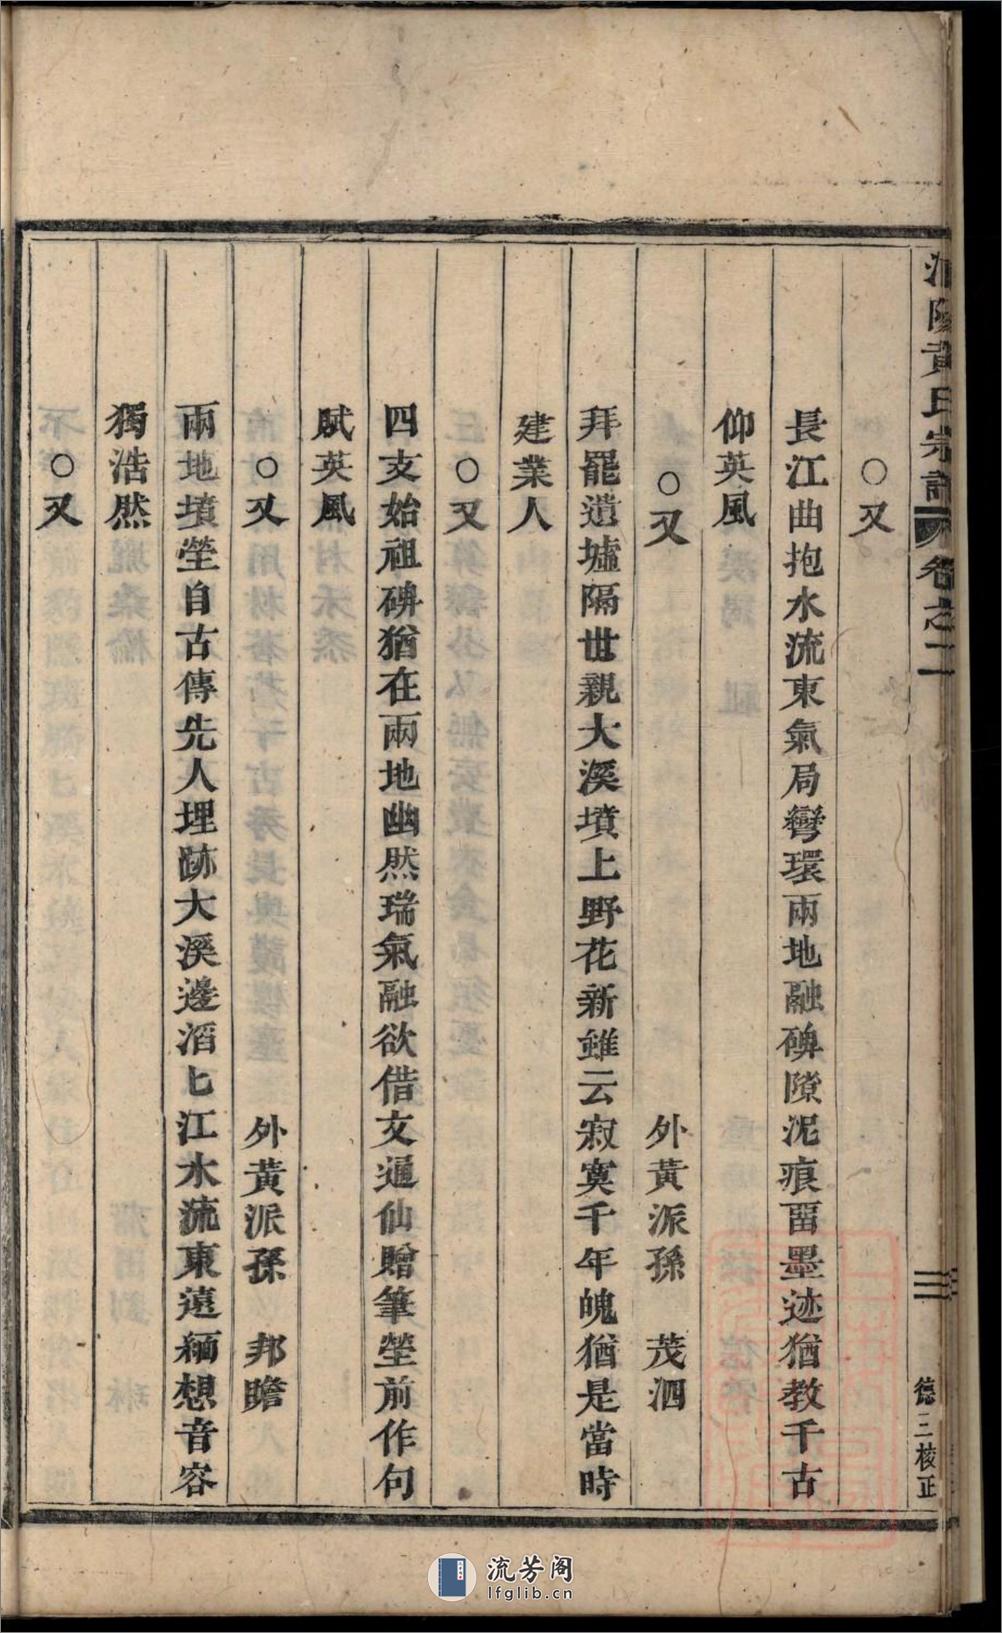 黃氏宗譜 卷之二
三
德三校正
○又
長江曲抱水流東氣局彎環兩地融碑隙泥痕畱墨迹猶教千古
仰英風
○又 外黃派孫 茂泗
拜罷遺墟隔世親大溪墳上野花新雖云寂寞千年魄猶是當時
建業人
○又
四支始祖碑猶在兩地幽然瑞氣融欲借文通仙贈筆塋前作句
賦英風
○又 外黃派孫 邦瞻
兩地墳塋自古傳先人埋跡大溪邊滔七江水流東遠緬想音容
獨浩然
○又
流芳阁
lfglib.cn